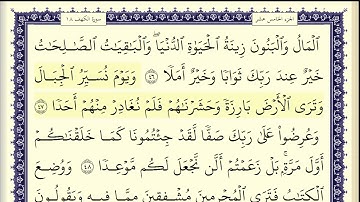 الجزء الخامس عشر
سورة الكهف ١٨
الْمَالُ وَالْبَنُونَ زِينَةُ الْحَيَوٰةِ الدُّنْيَا ۖ وَالْبَٰقِيَٰتُ الصَّٰلِحَٰتُ
خَيْرٌ عِندَ رَبِّكَ ثَوَابًا وَخَيْرٌ أَمَلًا ٤٦ وَيَوْمَ نُسَيِّرُ الْجِبَالَ
وَتَرَى الْأَرْضَ بَارِزَةً وَحَشَرْنَٰهُمْ فَلَمْ نُغَادِرْ مِنْهُمْ أَحَدًا ٤٧
وَعُرِضُوا۟ عَلَىٰ رَبِّكَ صَفًّا لَّقَدْ جِئْتُمُونَا كَمَا خَلَقْنَٰكُمْ
أَوَّلَ مَرَّةٍۭ ۚ بَلْ زَعَمْتُمْ أَلَّن نَّجْعَلَ لَكُم مَّوْعِدًا ٤٨ وَوُضِعَ
الْكِتَٰبُ فَتَرَى الْمُجْرِمِينَ مُشْفِقِينَ مِمَّا فِيهِ وَيَقُولُونَ